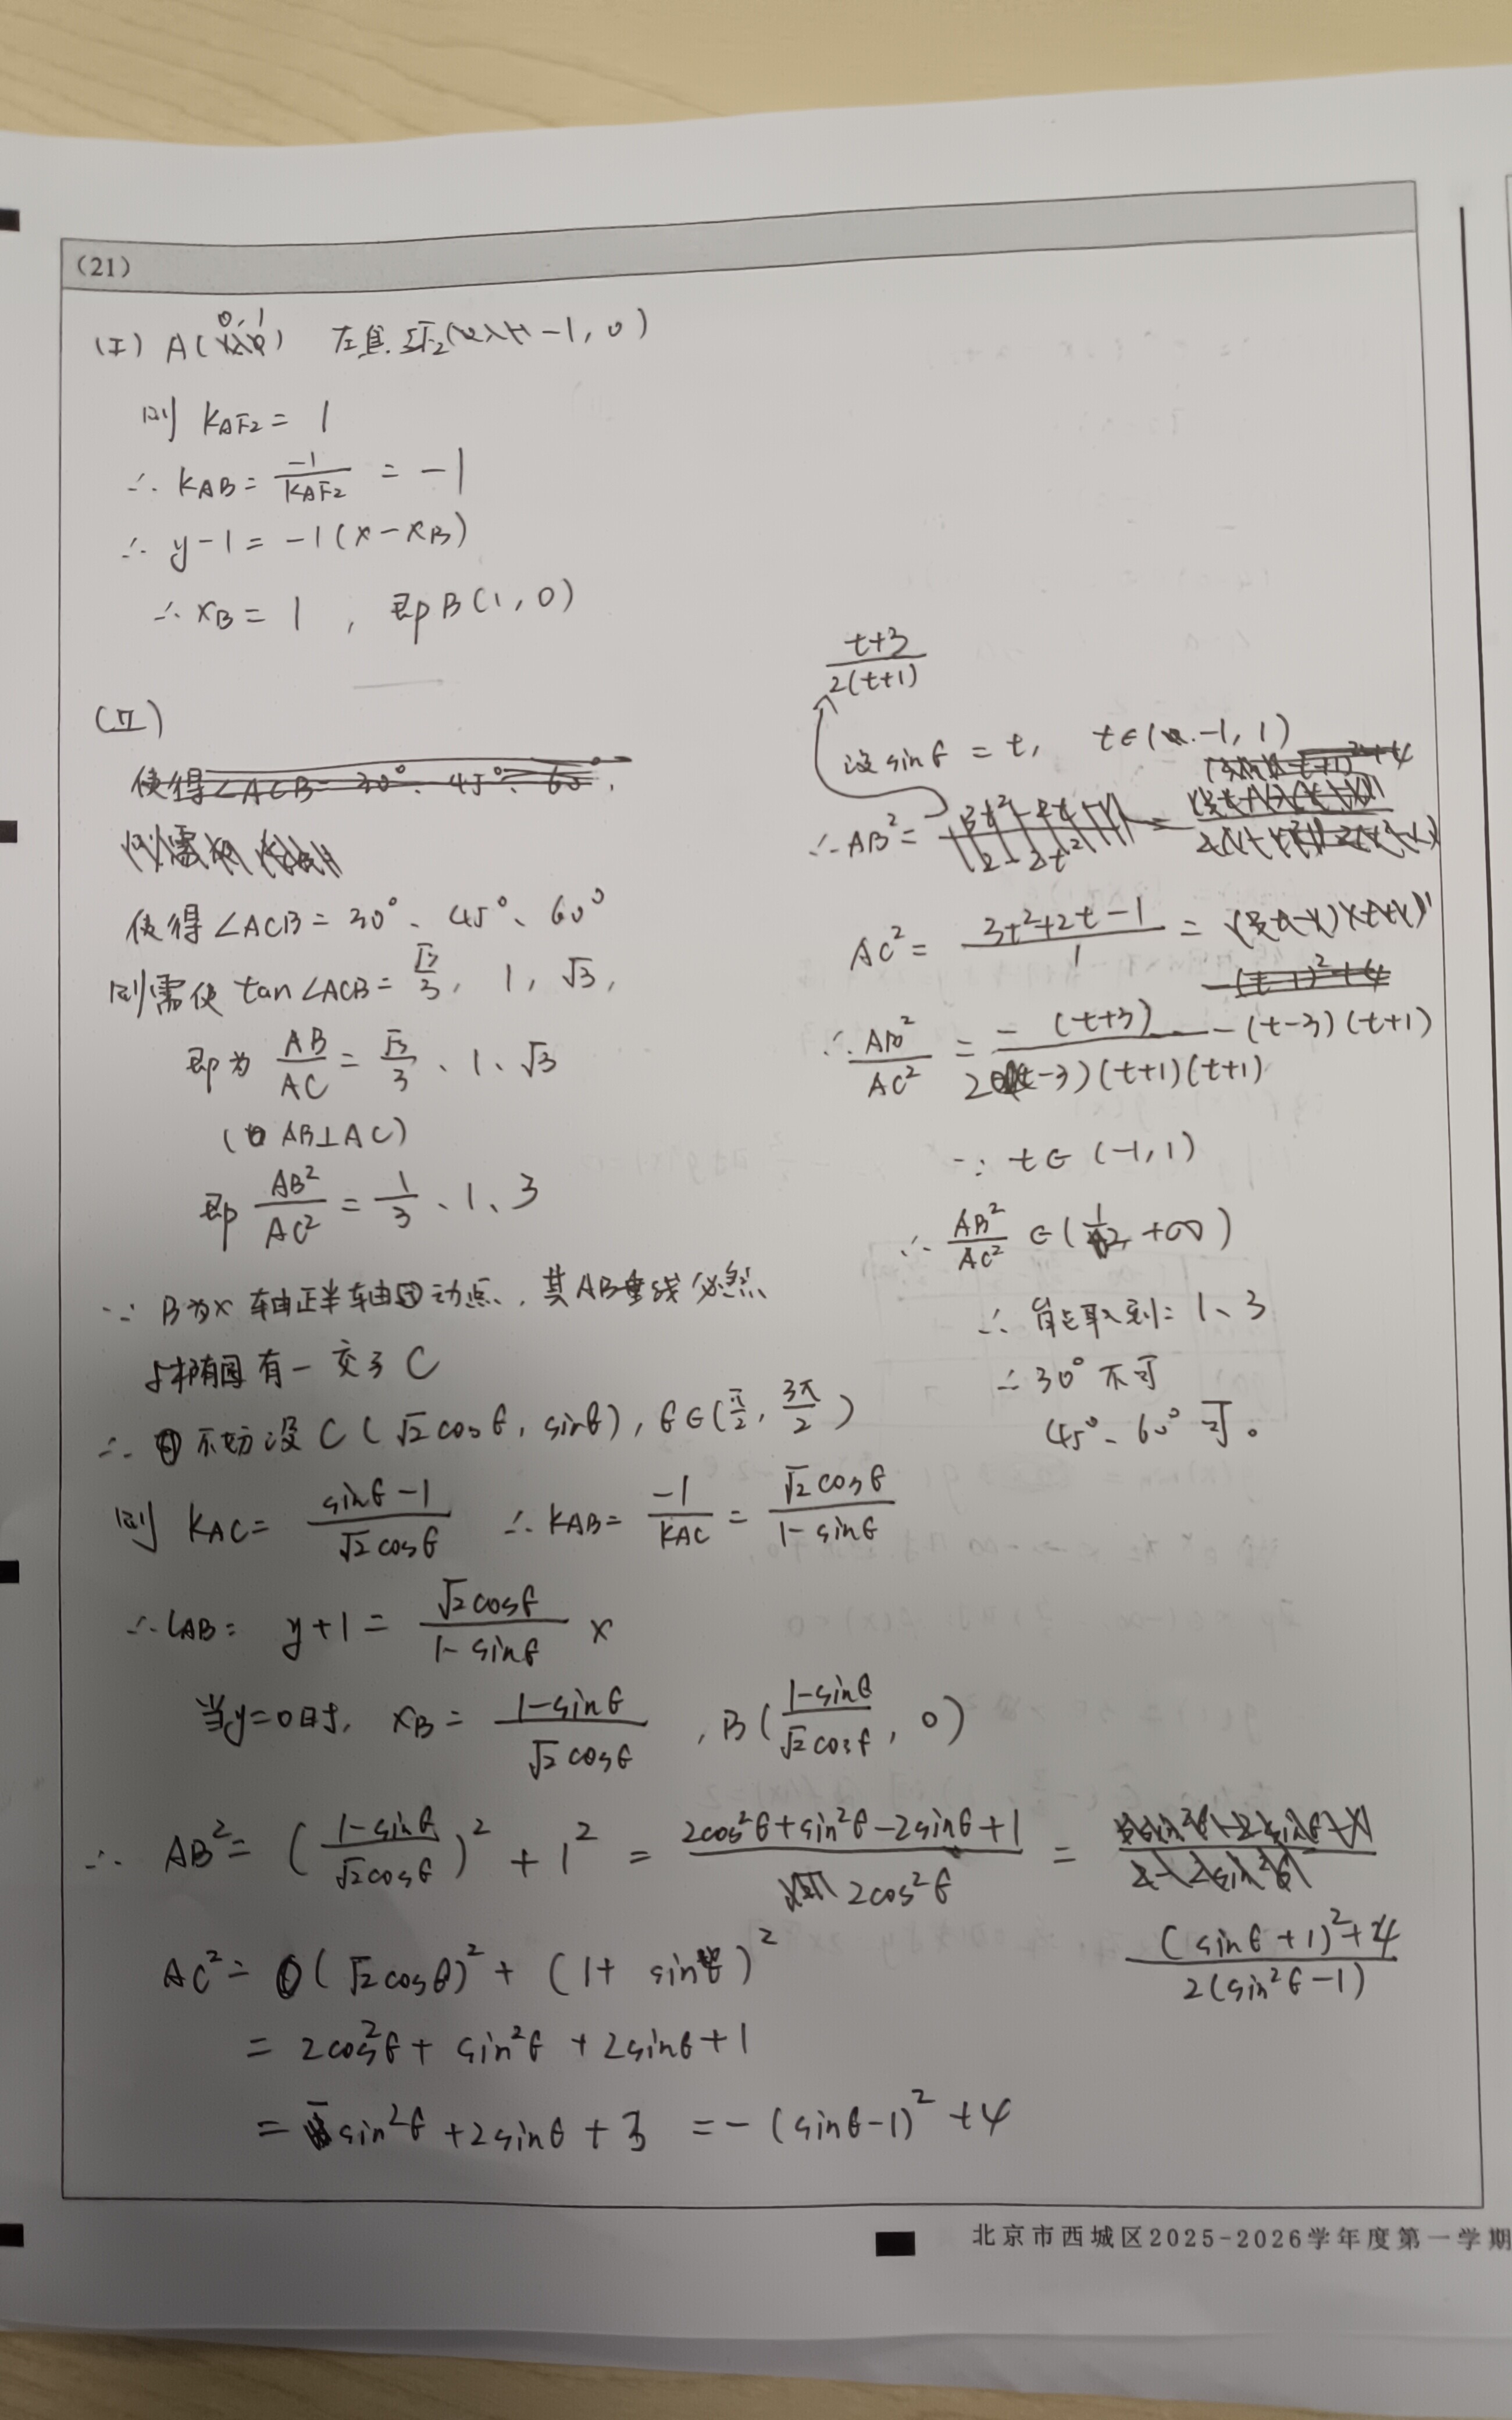 (21)
(I) A(0,1) 左焦 F₂(-1,0)
则 K_AF₂ = 1
∴ K_AB = -1/K_AF₂ = -1
∴ y-1 = -1(x-x_B)
∴ x_B = 1 , 即B(1,0)
(II)
使得∠ACB=30°、45°、60°,
使得∠ACB=30°、45°、60°
则需使 tan∠ACB=√3/3, 1, √3,
即为 AB/AC = √3/3、1、√3
(AB⊥AC)
即 AB²/AC² = 1/3、1、3
∵ B为x轴正半轴动点,其AB垂线必然
与椭圆有一交于C
∴ 不妨设C(√2cosθ, sinθ), θ∈(π/2, 3π/2)
则 K_AC= (sinθ-1)/(√2cosθ) ∴ K_AB= -1/K_AC = √2cosθ/(1-sinθ)
∴ l_AB: y+1 = √2cosθ/(1-sinθ) x
当y=0时, x_B = (1-sinθ)/(√2cosθ) , B((1-sinθ)/(√2cosθ), 0)
∴ AB²= ((1-sinθ)/(√2cosθ))² + 1² = (2cos²θ+sin²θ-2sinθ+1)/(2cos²θ) =
((sinθ+1)²+4)/(2(sin²θ-1))
AC²= (√2cosθ)² + (1+sinθ)²
= 2cos²θ + sin²θ + 2sinθ+1
= -sin²θ+2sinθ+3 = -(sinθ-1)²+4
(t+3)/(2(t+1))
设sinθ = t, t∈(-1,1)
∴ AB²=
AC² = (3t²+2t-1)/1 =
∴ AB²/AC² = -(t+3)/(2(t-3)(t+1)(t+1)) -(t-3)(t+1)
∵ t∈(-1,1)
∴ AB²/AC² ∈(1/2, +∞)
∴ 能取到: 1、3
∴ 30°不可
45°、60°可。
北京市西城区2025-2026学年度第一学期